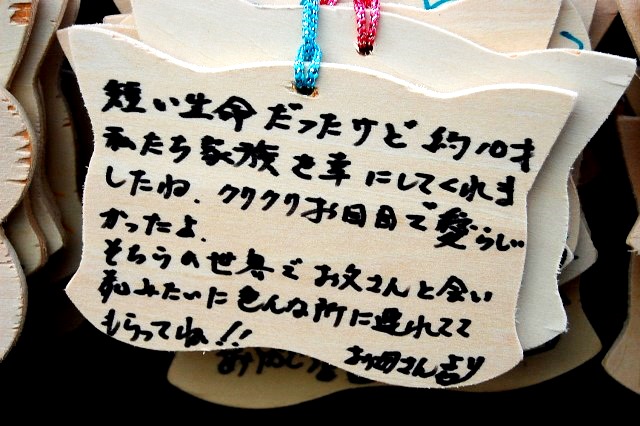 短い生命だったけど約10才
私たち家族を幸にしてくれま
したね.クリクリお目目で愛らし
かったよ.
そちらの世界でお父さんと会い
私みたいに色んな所に連れてて
もらってね!!
お母さんより